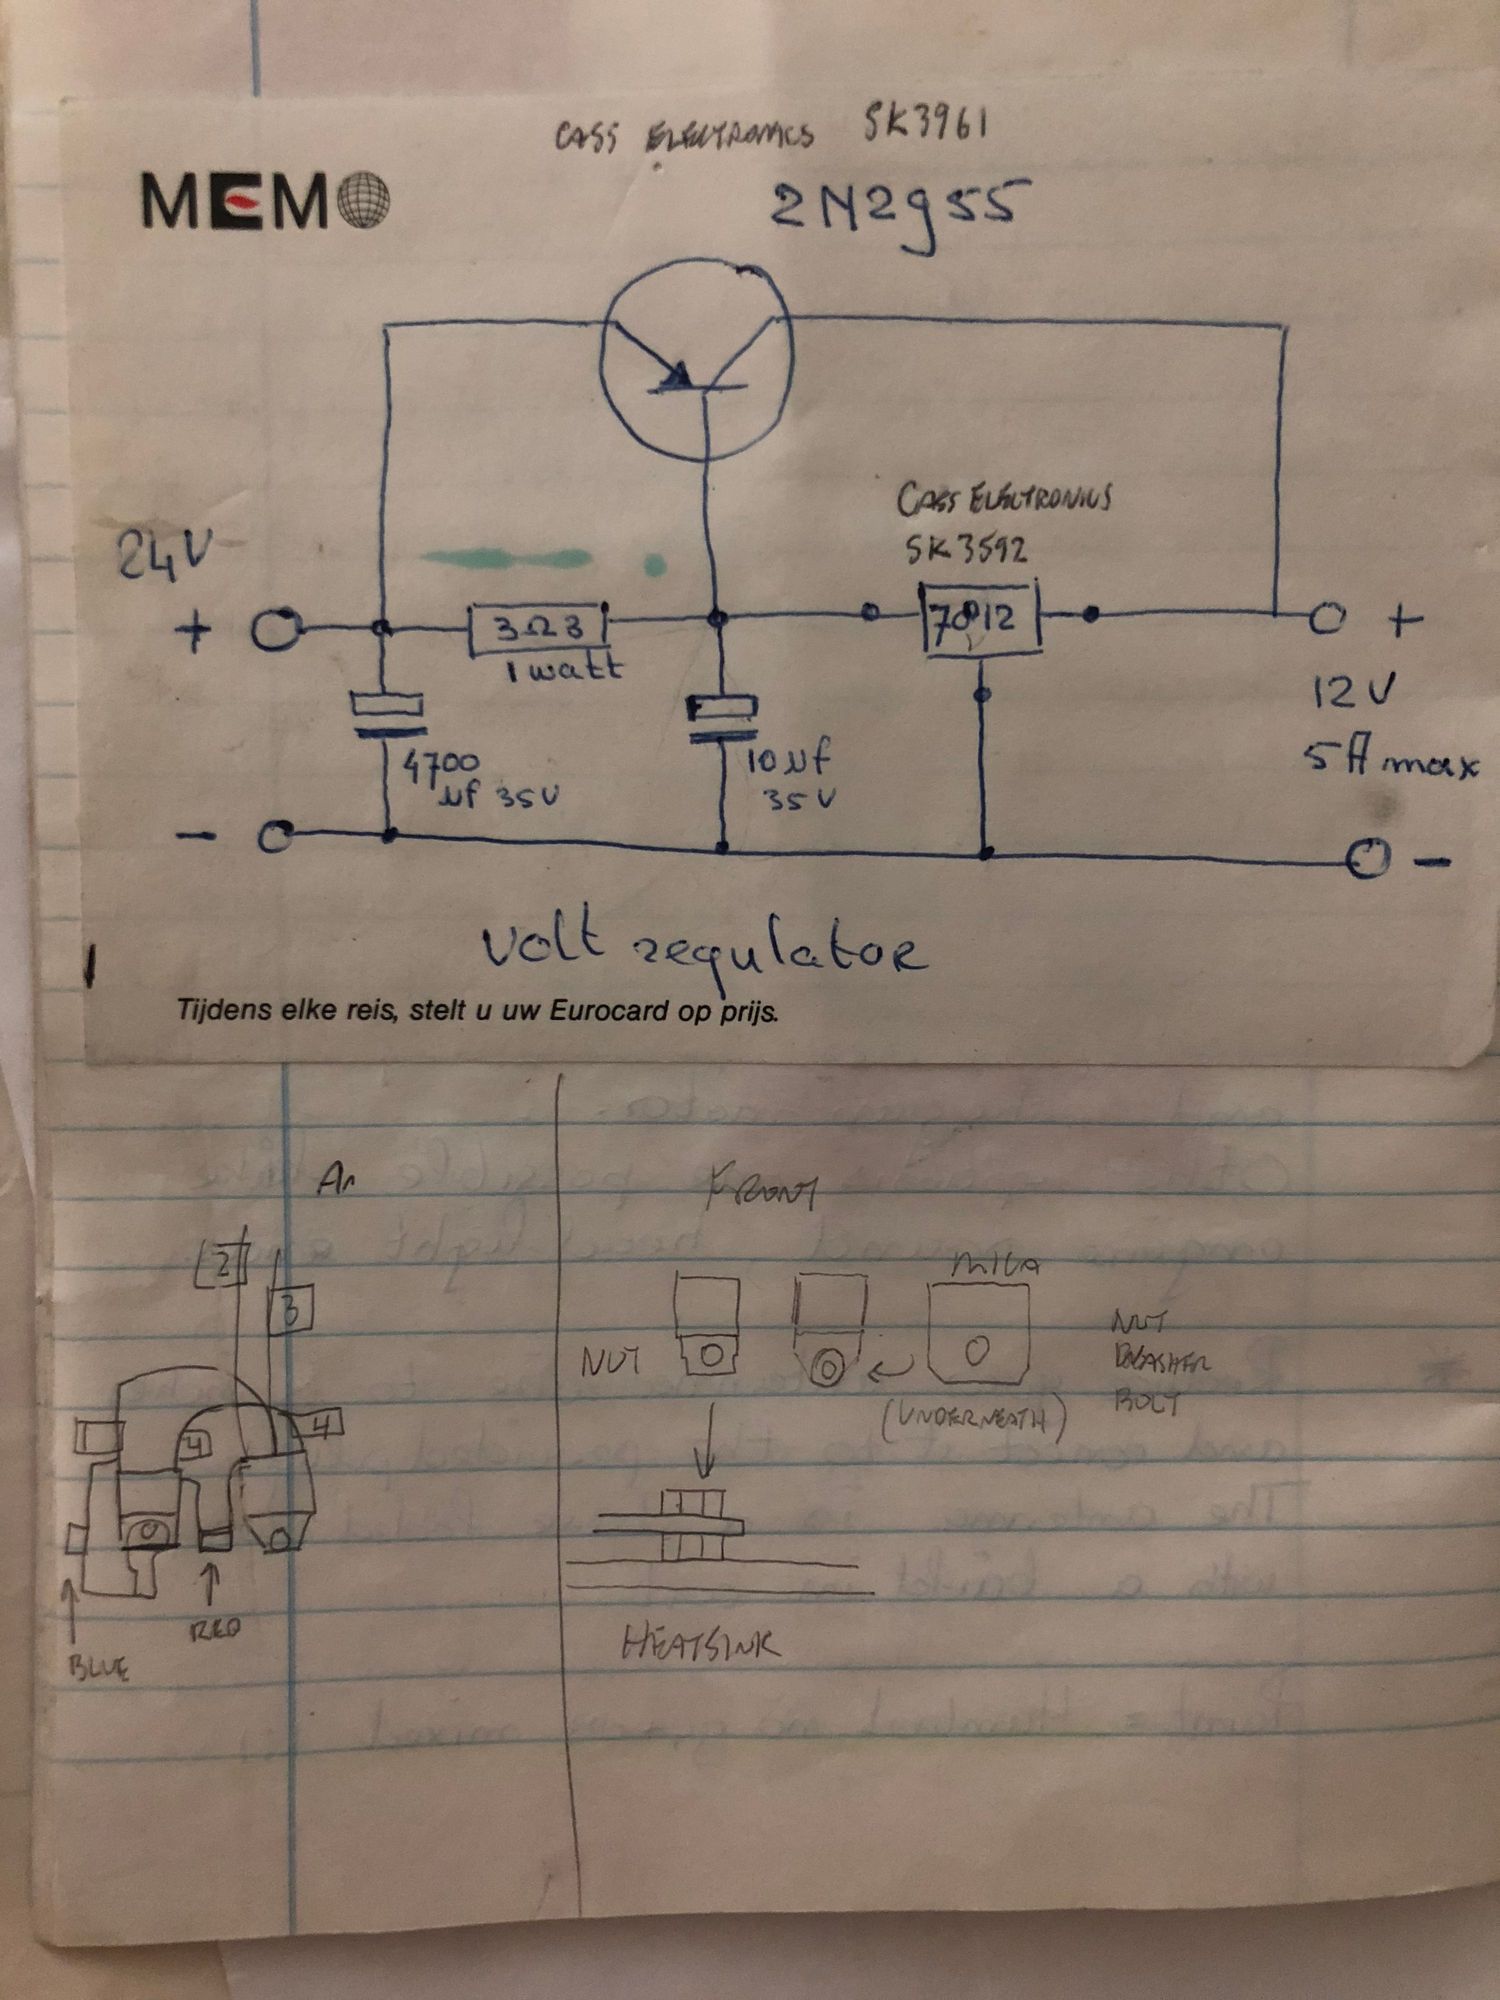 CASS ELECTRONICS SK3961
MEMO
2N2955
CASS ELECTRONICS
SK3592
24V
+
3Ω3
7812
+
1 watt
12V
4700
µf 35V
10µf
35V
5A max
-
-
volt regulator
Tijdens elke reis, stelt u uw Eurocard op prijs.
FRONT
2
3
MICA
NUT
NUT
WASHER
BOLT
4
4
(UNDERNEATH)
RED
BLUE
HEATSINK